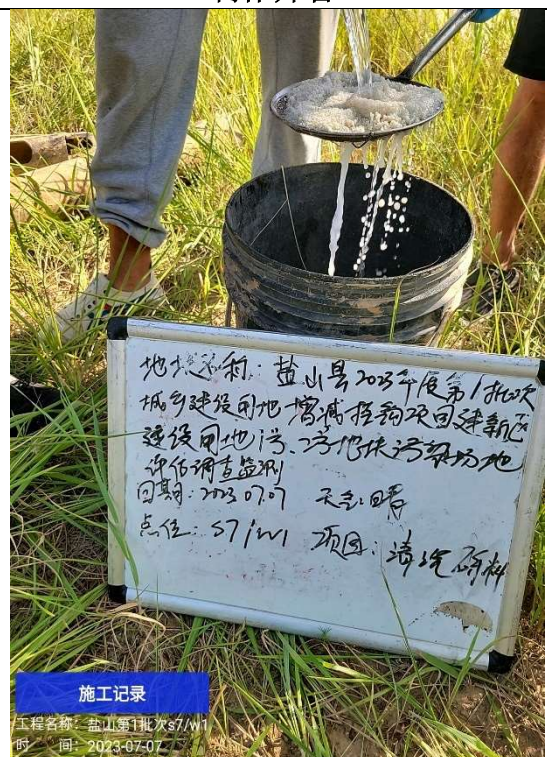 地块名称：盐山县2023年度第1批次
城乡建设用地增减挂钩项目建新区
建设用地1号、2号地块污染场地
评估调查监测
日期：2023.07.07 天气：晴
点位：S7/W1 项目：清洗砾料
施工记录
工程名称：盐山第1批次s7/w1
时 间：2023-07-07